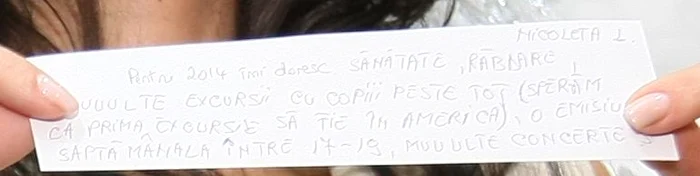 NICOLETA L.
Pentru 2014 îmi doresc SĂNĂTATE, RĂBDARE
MUUULTE EXCURSII CU COPIII PESTE TOT (SPERĂM
CA PRIMA EXCURSIE SĂ FIE ÎN AMERICA), O EMISIU
SĂPTĂMÂNALĂ ÎNTRE 17-19, MUUULTE CONCERTE